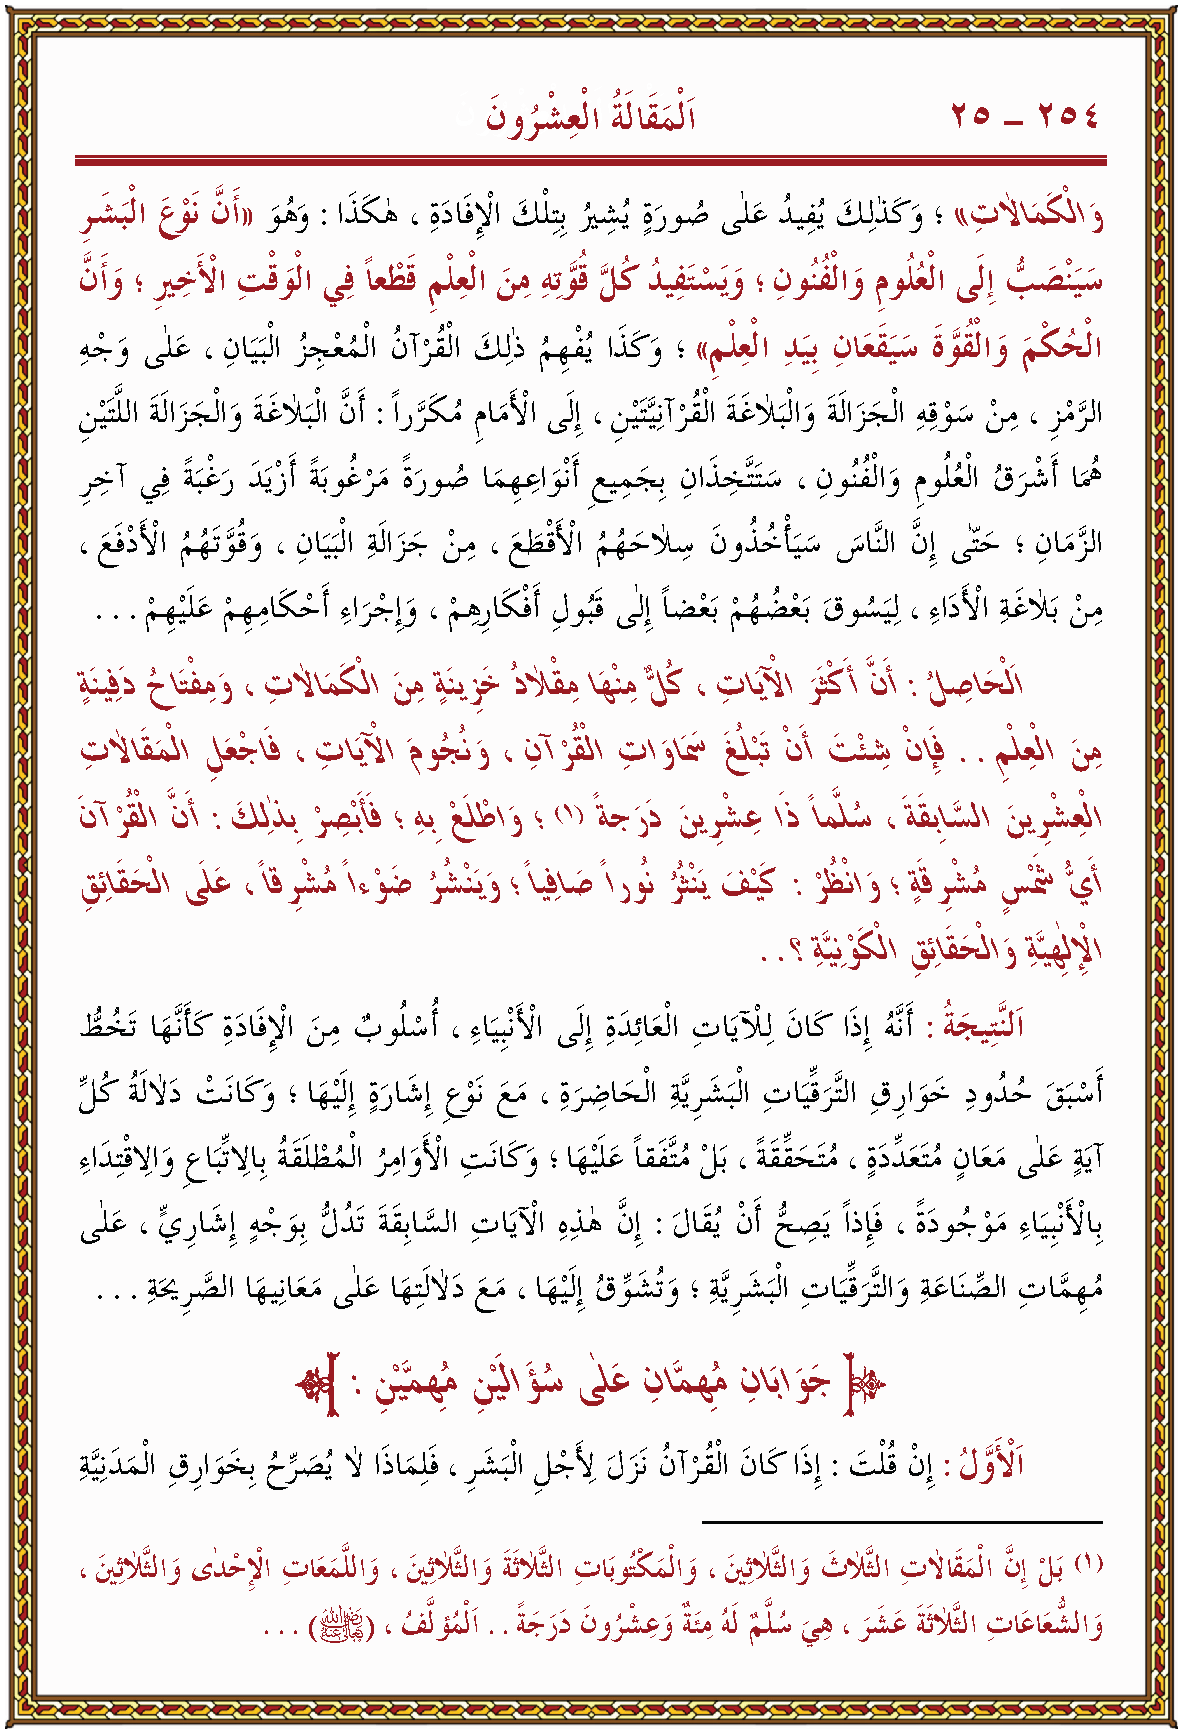 ٢٥٤ ـ ٢٥ اَلْمَقَالَةُ الْعِشْرُونَ
وَالْكَمَالاٰتِ» ؛ وَكَذٰلِكَ يُفِيدُ عَلٰى صُورَةٍ يُشِيرُ بِتِلْكَ الْإِفَادَةِ ، هٰكَذَا : وَهُوَ «أَنَّ نَوْعَ الْبَشَرِ
سَيَنْصَبُّ إِلَى الْعُلُومِ وَالْفُنُونِ ؛ وَيَسْتَفِيدُ كُلَّ قُوَّتِهِ مِنَ الْعِلْمِ قَطْعاً فِي الْوَقْتِ الْأَخِيرِ ؛ وَأَنَّ
الْحُكْمَ وَالْقُوَّةَ سَيَقَعَانِ بِيَدِ الْعِلْمِ» ؛ وَكَذَا يُفْهِمُ ذٰلِكَ الْقُرْآنُ الْمُعْجِزُ الْبَيَانِ ، عَلٰى وَجْهِ
الرَّمْزِ ، مِنْ سَوْقِهِ الْجَزَالَةَ وَالْبَلاٰغَةَ الْقُرْآنِيَّتَيْنِ ، إِلَى الْأَمَامِ مُكَرَّراً : أَنَّ الْبَلاٰغَةَ وَالْجَزَالَةَ اللَّتَيْنِ
هُمَا أَشْرَقُ الْعُلُومِ وَالْفُنُونِ ، سَتَتَّخِذَانِ بِجَمِيعِ أَنْوَاعِهِمَا صُورَةً مَرْغُوبَةً أَزْيَدَ رَغْبَةً فِي آخِرِ
الزَّمَانِ ؛ حَتّٰى إِنَّ النَّاسَ سَيَأْخُذُونَ سِلاٰحَهُمُ الْأَقْطَعَ ، مِنْ جَزَالَةِ الْبَيَانِ ، وَقُوَّتَهُمُ الْأَدْفَعَ ،
مِنْ بَلاٰغَةِ الْأَدَاءِ ، لِيَسُوقَ بَعْضُهُمْ بَعْضاً إِلٰى قَبُولِ أَفْكَارِهِمْ ، وَإِجْرَاءِ أَحْكَامِهِمْ عَلَيْهِمْ . . .
اَلْحَاصِلُ : أَنَّ أَكْثَرَ الْآيَاتِ ، كُلٌّ مِنْهَا مِقْلاٰدُ خَزِينَةٍ مِنَ الْكَمَالاٰتِ ، وَمِفْتَاحُ دَفِينَةٍ
مِنَ الْعِلْمِ . . فَإِنْ شِئْتَ أَنْ تَبْلُغَ سَمَاوَاتِ الْقُرْآنِ ، وَنُجُومَ الْآيَاتِ ، فَاجْعَلِ الْمَقَالاٰتِ
الْعِشْرِينَ السَّابِقَةَ ، سُلَّماً ذَا عِشْرِينَ دَرَجةً (١) ؛ وَاطْلَعْ بِهِ ؛ فَأَبْصِرْ بِذٰلِكَ : أَنَّ الْقُرْآنَ
أَيُّ شَمْسٍ مُشْرِقَةٍ ؛ وَانْظُرْ : كَيْفَ يَنْثُرُ نُوراً صَافِياً ؛ وَيَنْشُرُ ضَوْءاً مُشْرِقاً ، عَلَى الْحَقَائِقِ
الْإِلٰهِيَّةِ وَالْحَقَائِقِ الْكَوْنِيَّةِ ؟ . .
اَلنَّتِيجَةُ : أَنَّهُ إِذَا كَانَ لِلْآيَاتِ الْعَائِدَةِ إِلَى الْأَنْبِيَاءِ ، أُسْلُوبٌ مِنَ الْإِفَادَةِ كَأَنَّهَا تَخُطُّ
أَسْبَقَ حُدُودِ خَوَارِقِ التَّرَقِّيَاتِ الْبَشَرِيَّةِ الْحَاضِرَةِ ، مَعَ نَوْعِ إِشَارَةٍ إِلَيْهَا ؛ وَكَانَتْ دَلاٰلَةُ كُلِّ
آيَةٍ عَلٰى مَعَانٍ مُتَعَدِّدَةٍ ، مُتَحَقِّقَةً ، بَلْ مُتَّفَقاً عَلَيْهَا ؛ وَكَانَتِ الْأَوَامِرُ الْمُطْلَقَةُ بِالِاتِّبَاعِ وَالِاقْتِدَاءِ
بِالْأَنْبِيَاءِ مَوْجُودَةً ، فَإِذاً يَصِحُّ أَنْ يُقَالَ : إِنَّ هٰذِهِ الْآيَاتِ السَّابِقَةَ تَدُلُّ بِوَجْهٍ إِشَارِيٍّ ، عَلٰى
مُهِمَّاتِ الصِّنَاعَةِ وَالتَّرَقِّيَاتِ الْبَشَرِيَّةِ ؛ وَتُشَوِّقُ إِلَيْهَا ، مَعَ دَلاٰلَتِهَا عَلٰى مَعَانِيهَا الصَّرِيحَةِ . . .
جَوَابَانِ مُهِمَّانِ عَلٰى سُؤَالَيْنِ مُهِمَّيْنِ :
اَلْأَوَّلُ : إِنْ قُلْتَ : إِذَا كَانَ الْقُرْآنُ نَزَلَ لِأَجْلِ الْبَشَرِ ، فَلِمَاذَا لاٰ يُصَرِّحُ بِخَوَارِقِ الْمَدَنِيَّةِ
(١) بَلْ إِنَّ الْمَقَالاٰتِ الثَّلاٰثَ وَالثَّلاٰثِينَ ، وَالْمَكْتُوبَاتِ الثَّلاٰثَةَ وَالثَّلاٰثِينَ ، وَاللَّمَعَاتِ الْإِحْدٰى وَالثَّلاٰثِينَ ،
وَالشُّعَاعَاتِ الثَّلاٰثَةَ عَشَرَ ، هِيَ سُلَّمٌ لَهُ مِئَةٌ وَعِشْرُونَ دَرَجَةً . . اَلْمُؤَلِّفُ ، (رَضِيَ اللّٰهُ عَنْهُ) . . .